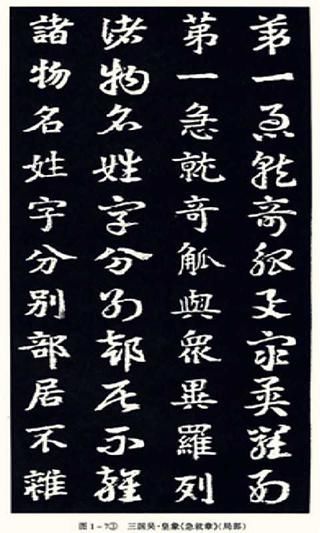 第一急就奇觚與眾異羅列
第一急就奇觚與眾異羅列
諸物名姓字分別部居不雜
諸物名姓字分別部居不雜
图1-7③ 三国吴·皇象《急就章》(局部)